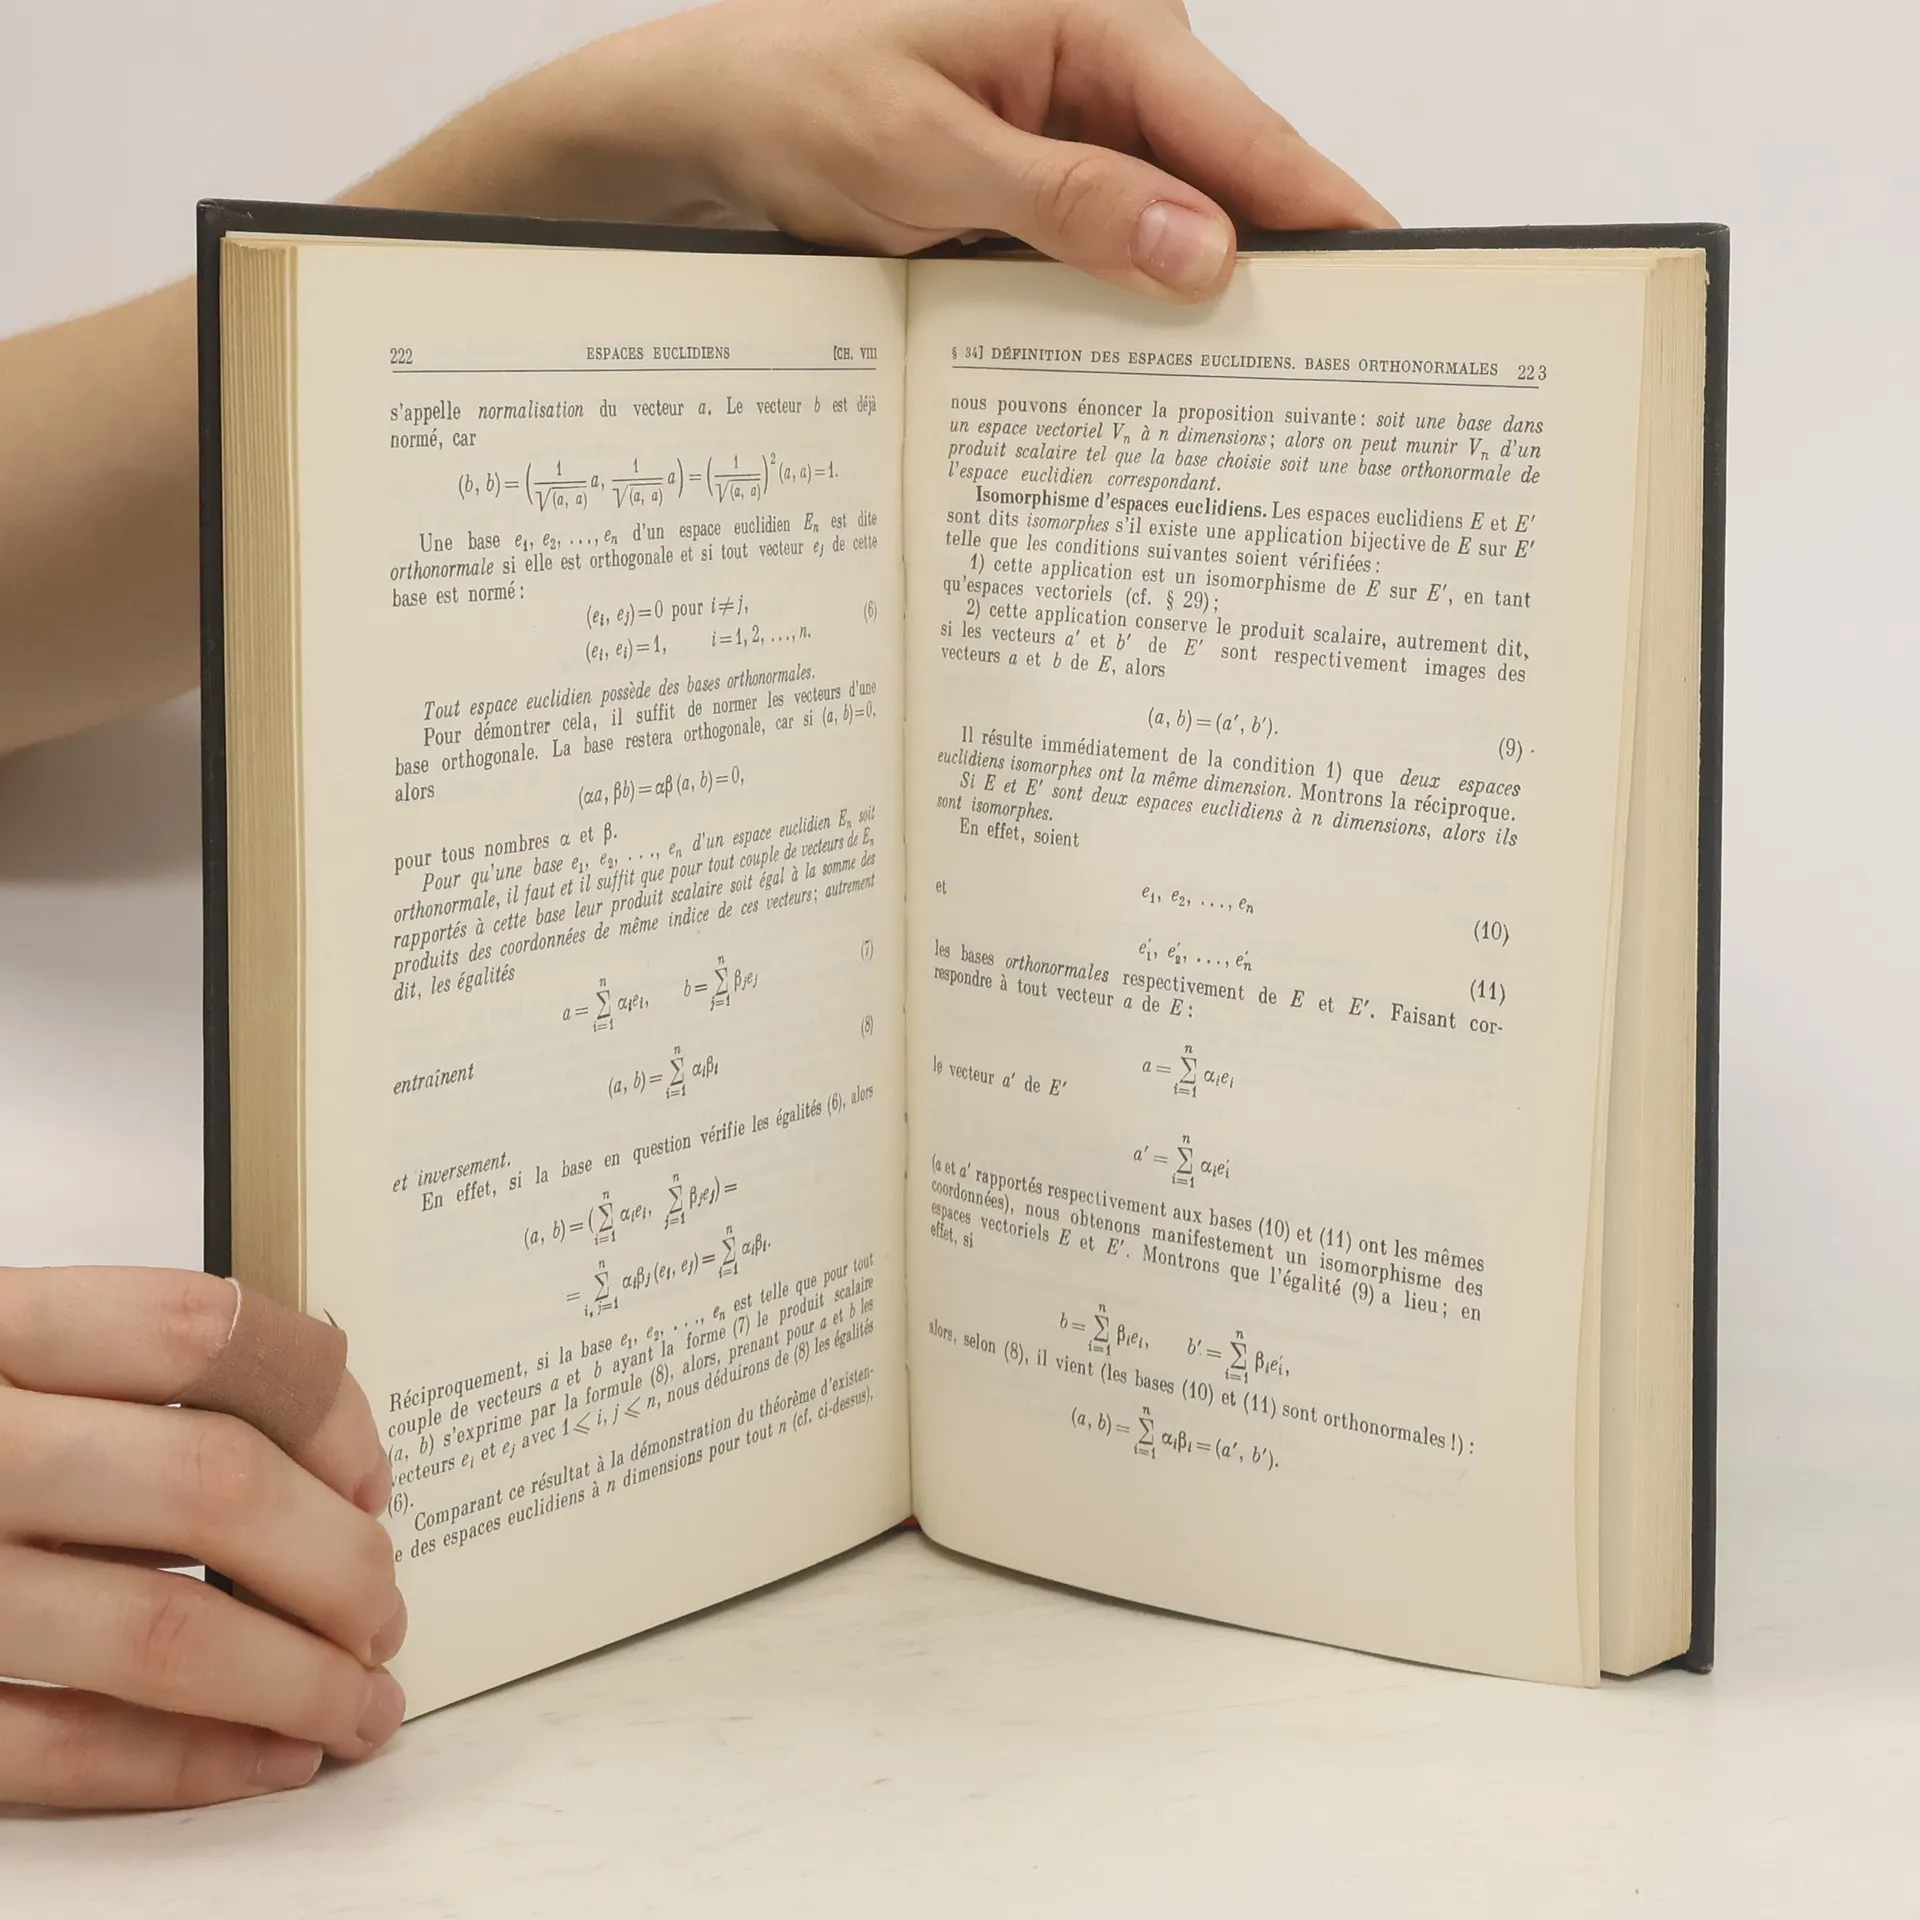 222 ESPACES EUCLIDIENS [CH. VIII
s'appelle normalisation du vecteur a. Le vecteur b est déjà
normé, car
(b, b) = (1/√(a, a) a, 1/√(a, a) a) = (1/√(a, a))² (a, a) = 1.
Une base e₁, e₂, ..., eₙ d'un espace euclidien Eₙ est dite
orthonormale si elle est orthogonale et si tout vecteur eⱼ de cette
base est normé:
(eᵢ, eⱼ)=0 pour i≠j, (6)
(eᵢ, eᵢ)=1, i=1, 2, ..., n.
Tout espace euclidien possède des bases orthonormales.
Pour démontrer cela, il suffit de normer les vecteurs d'une
base orthogonale. La base restera orthogonale, car si (a, b)=0,
alors
(αa, βb)=αβ (a, b)=0,
pour tous nombres α et β.
Pour qu'une base e₁, e₂, ..., eₙ d'un espace euclidien Eₙ soit
orthonormale, il faut et il suffit que pour tout couple de vecteurs de Eₙ
rapportés à cette base leur produit scalaire soit égal à la somme des
produits des coordonnées de même indice de ces vecteurs; autrement
dit, les égalités
a = ∑ⁿᵢ₌₁ αᵢeᵢ, b = ∑ⁿⱼ₌₁ βⱼeⱼ (7)
entraînent
(a, b) = ∑ⁿᵢ₌₁ αᵢβᵢ (8)
et inversement.
En effet, si la base en question vérifie les égalités (6), alors
(a, b) = (∑ⁿᵢ₌₁ αᵢeᵢ, ∑ⁿⱼ₌₁ βⱼeⱼ) =
= ∑ⁿᵢ,ⱼ₌₁ αᵢβⱼ (eᵢ, eⱼ) = ∑ⁿᵢ₌₁ αᵢβᵢ.
Réciproquement, si la base e₁, e₂, ..., eₙ est telle que pour tout
couple de vecteurs a et b ayant la forme (7) le produit scalaire
(a, b) s'exprime par la formule (8), alors, prenant pour a et b les
vecteurs eᵢ et eⱼ avec 1 ⩽ i, j ⩽ n, nous déduirons de (8) les égalités
(6).
Comparant ce résultat à la démonstration du théorème d'existen-
e des espaces euclidiens à n dimensions pour tout n (cf. ci-dessus),
§ 34] DÉFINITION DES ESPACES EUCLIDIENS. BASES ORTHONORMALES 223
nous pouvons énoncer la proposition suivante: soit une base dans
un espace vectoriel Vₙ à n dimensions; alors on peut munir Vₙ d'un
produit scalaire tel que la base choisie soit une base orthonormale de
l'espace euclidien correspondant.
Isomorphisme d'espaces euclidiens. Les espaces euclidiens E et E′
sont dits isomorphes s'il existe une application bijective de E sur E′
telle que les conditions suivantes soient vérifiées:
1) cette application est un isomorphisme de E sur E′, en tant
qu'espaces vectoriels (cf. § 29);
2) cette application conserve le produit scalaire, autrement dit,
si les vecteurs a′ et b′ de E′ sont respectivement images des
vecteurs a et b de E, alors
(a, b)=(a′, b′). (9)
Il résulte immédiatement de la condition 1) que deux espaces
euclidiens isomorphes ont la même dimension. Montrons la réciproque.
Si E et E′ sont deux espaces euclidiens à n dimensions, alors ils
sont isomorphes.
En effet, soient
e₁, e₂, ..., eₙ (10)
et
e′₁, e′₂, ..., e′ₙ (11)
les bases orthonormales respectivement de E et E′. Faisant cor-
respondre à tout vecteur a de E:
a = ∑ⁿᵢ₌₁ αᵢeᵢ
le vecteur a′ de E′
a′ = ∑ⁿᵢ₌₁ αᵢe′ᵢ
(a et a′ rapportés respectivement aux bases (10) et (11) ont les mêmes
coordonnées), nous obtenons manifestement un isomorphisme des
espaces vectoriels E et E′. Montrons que l'égalité (9) a lieu; en
effet, si
b = ∑ⁿᵢ₌₁ βᵢeᵢ, b′ = ∑ⁿᵢ₌₁ βᵢe′ᵢ,
alors, selon (8), il vient (les bases (10) et (11) sont orthonormales!):
(a, b) = ∑ⁿᵢ₌₁ αᵢβᵢ = (a′, b′).